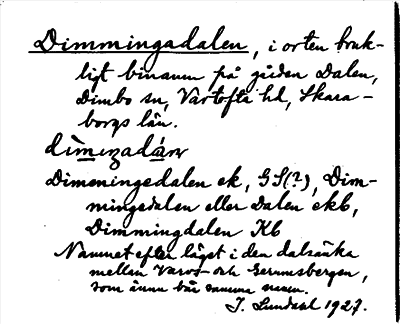 Dimmingadalen, i orten bruk-
ligt binamn på gården Dalen,
Dimbo sn, Vartofta hd, Skara-
borgs län.
dìmiŋadán
Dimeningedalen ek, GS(?), Dim-
mingedalen eller Dalen ekb,
Dimmingdalen Kb
Namnet efter läget i den dalsänka
mellan Varvs- och Gerumsbergen,
som ännu bär samma namn.
I. Lundahl 1927.